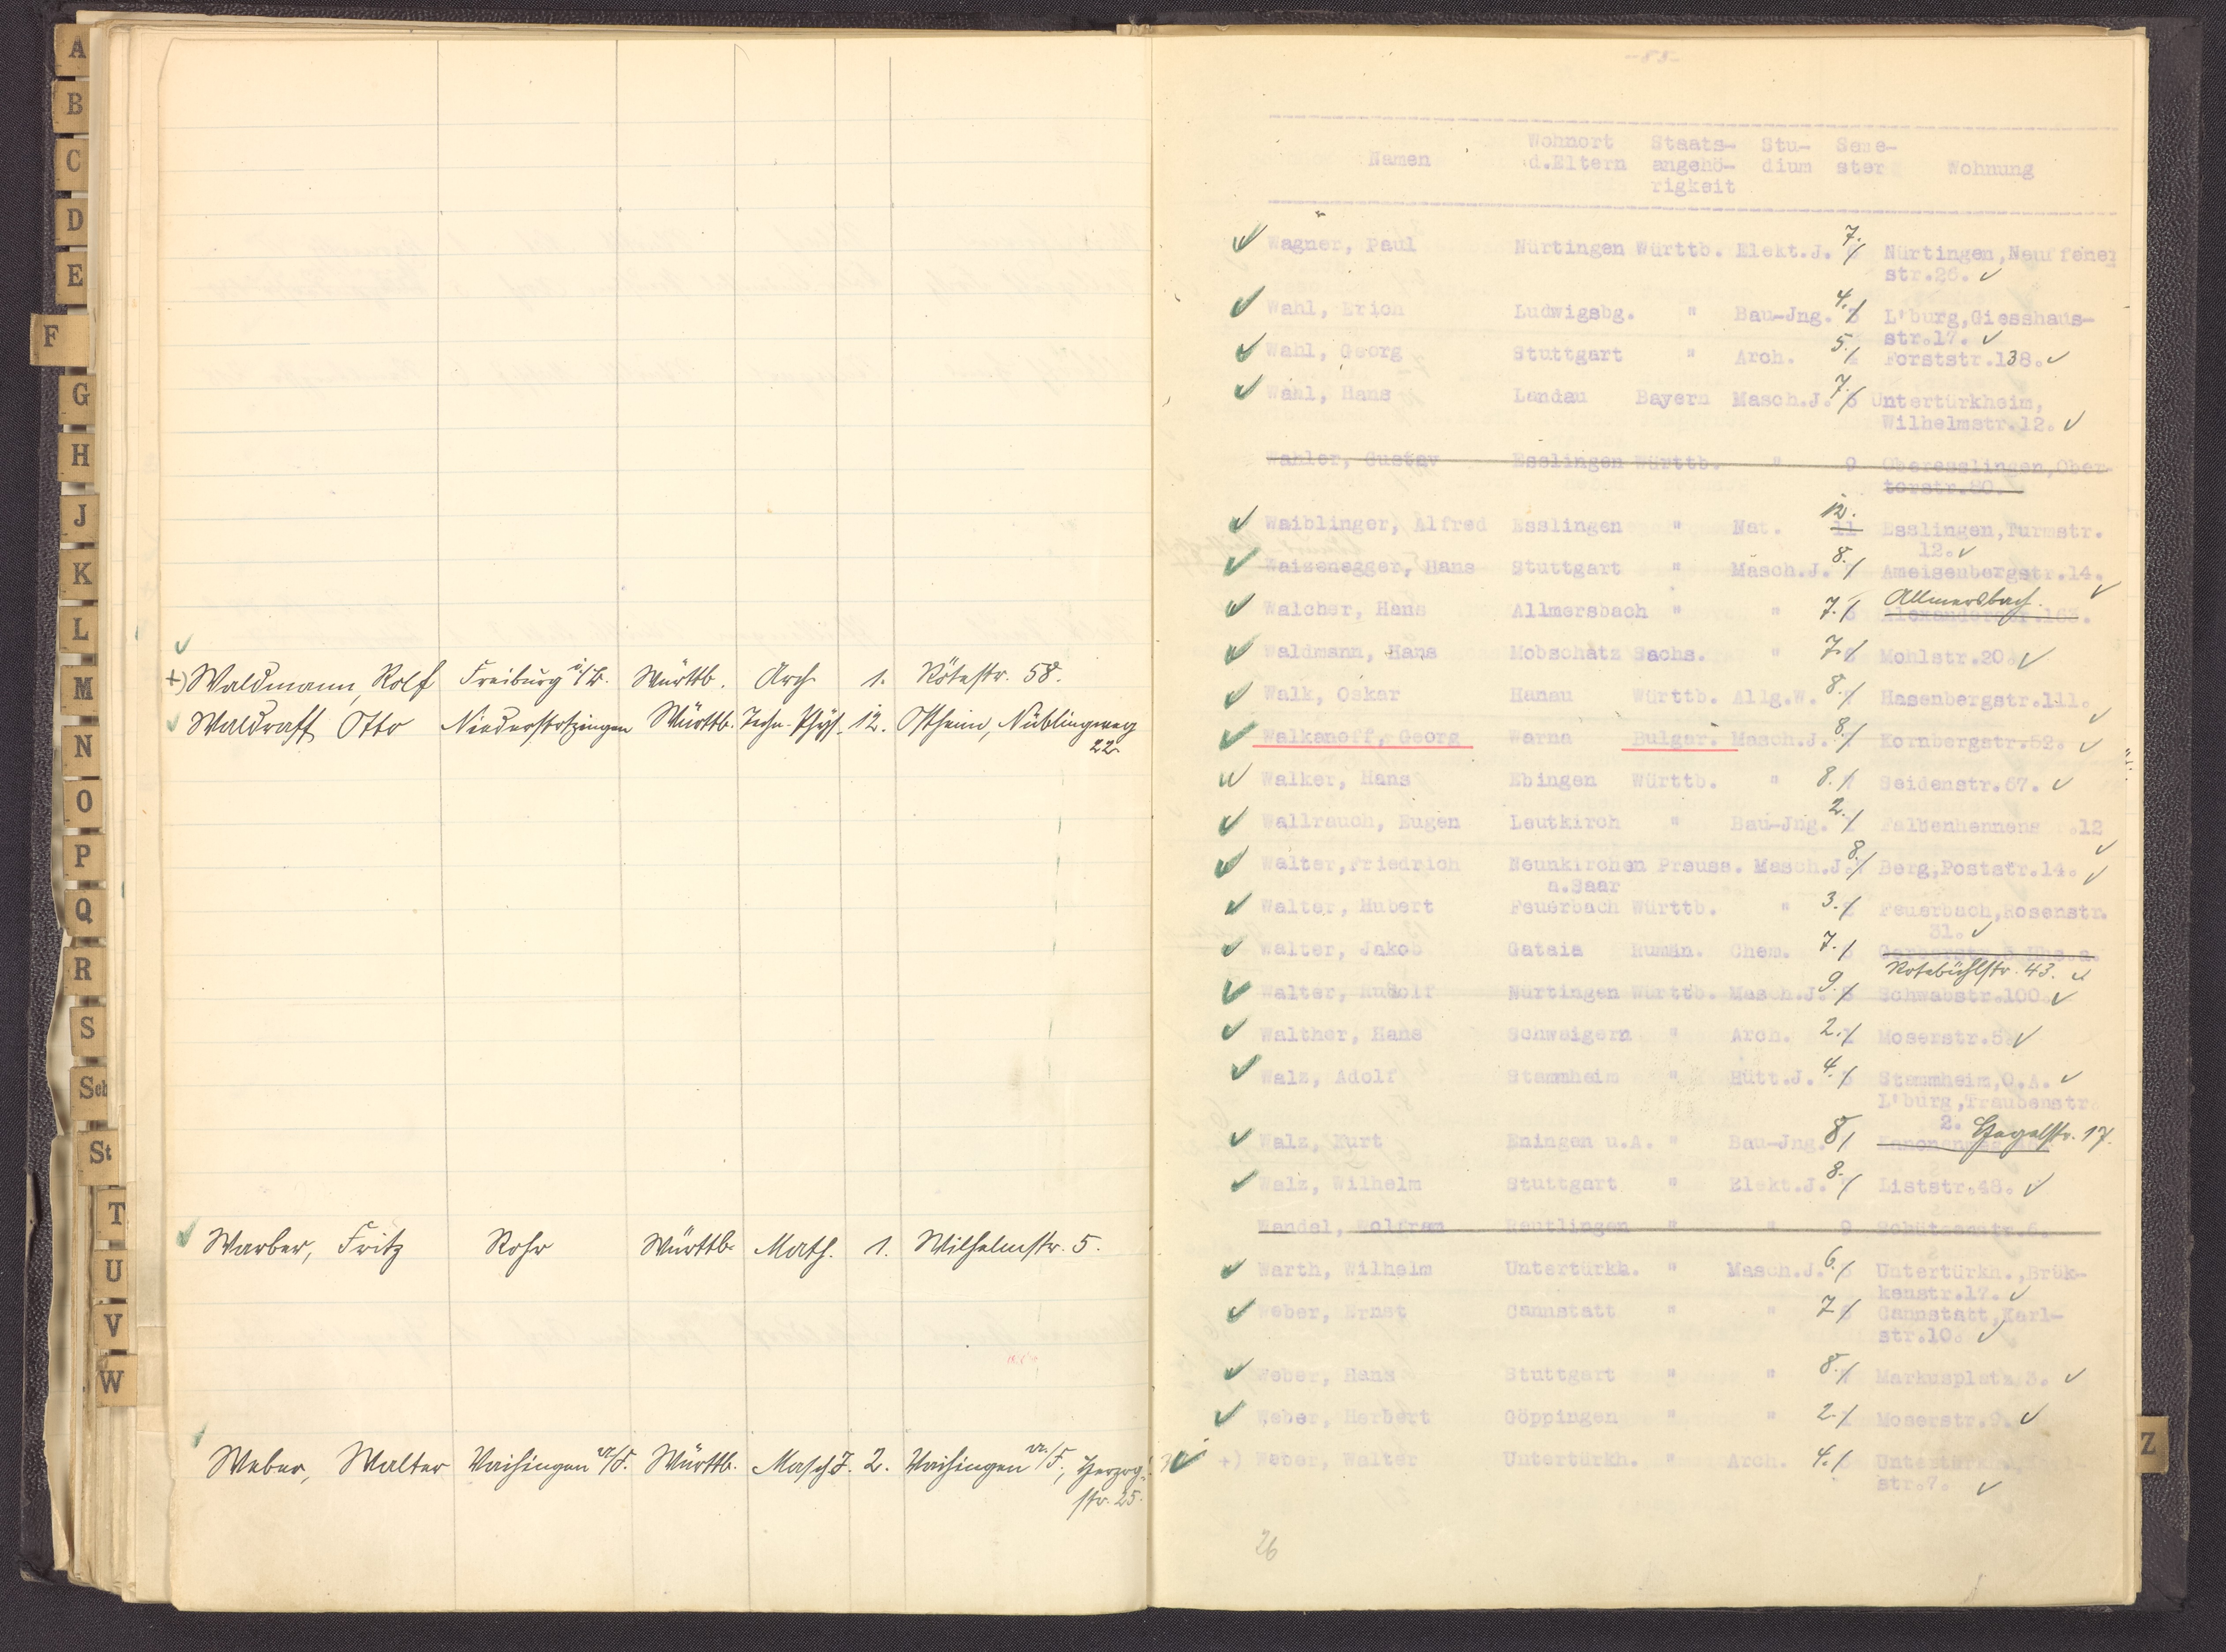 A
B
C
D
E
F
G
H
J
K
L
M
N
O
P
Q
R
S
Sch
St
T
U
V
W
Z
+) Waldmann, Rolf Freiburg i/B. Württb. Arch 1. Rötestr. 58.
Waldraff Otto Niederstotzingen Württb. Techn. Phys. 12. Ostheim, Nüblingweg
22.
Warber, Fritz Rohr Württb. Math. 1. Wilhelmstr. 5.
Weber, Walter Vaihingen a/F. Württb. Masch J. 2. Vaihingen a/F., Herzog-
str. 25.
-85-
Wohnort Staats- Stu- Seme-
Namen d.Eltern angehö- dium ster Wohnung
rigkeit
Wagner, Paul Nürtingen Württb. Elekt.J. 7. Nürtingen,Neuffener
str.26.
Wahl, Erich Ludwigsbg. " Bau-Jng. 4. 3 L'burg,Giesshaus-
str.17.
Wahl, Georg Stuttgart " Arch. 5. Forststr.138.
Wahl, Hans Landau Bayern Masch.J. 7. 6 Untertürkheim,
Wilhelmstr.12.
Wahler, Gustav Esslingen Württb. " 9 Oberesslingen,Ober-
torstr.80.
12.
Waiblinger, Alfred Esslingen " Nat. 11 Esslingen,Turmstr.
12.
Waisenegger, Hans Stuttgart " Masch.J. 8. Ameisenbergstr.14.
Allmersbach.
Walcher, Hans Allmersbach " " 7. Alexanderstr.163.
Waldmann, Hans Mobschatz Sachs. " 7. Mohlstr.20
Walk, Oskar Hanau Württb. Allg.W. 8. Hasenbergstr.111.
Walkanoff, Georg Warna Bulgar. Masch.J. 8. Kornbergstr.52.
Walker, Hans Ebingen Württb. " 8. Seidenstr.57.
Wallrauch, Eugen Leutkirch " Bau-Jng. 2. Falbenhennens .12
Walter,Friedrich Neunkirchen Preuss. Masch.J. 8. Berg,Poststr.14.
a.Saar
Walter, Hubert Feuerbach Württb. " 3. Feuerbach,Rosenstr.
31.
Walter, Jakob Gataia Rumän. Chem. 7. Gerberstr.
Rotebühlstr. 43.
Walter, Rudolf Nürtingen Württb. Masch.J. 9. 8 Schwabstr.100.
Walther, Hans Schweigern " Arch. 2. Moserstr.5
Walz, Adolf Stammheim " Hütt.J. 4. Stammheim,O.A.
L'burg,Traubenstr.
2.
Walz, Kurt Eningen u.A. " Bau-Jng. 8 Hegelstr. 17.
Walz, Wilhelm Stuttgart " Elekt.J. 8. Liststr.48.
Wandel, Wolfram Reutlingen " " 9 Schützenstr.6.
Warth, Wilhelm Untertürkh. " Masch.J. 6. Untertürkh.,Brük-
kenstr.17.
Weber, Ernst Cannstatt " " 7 Cannstatt,Karl-
str.10.
Weber, Hans Stuttgart " " 8. Markusplatz 3.
Weber, Herbert Göppingen " " 2. Moserstr.9.
+) Weber, Walter Untertürkh. " Arch. 4.
str.7.
26